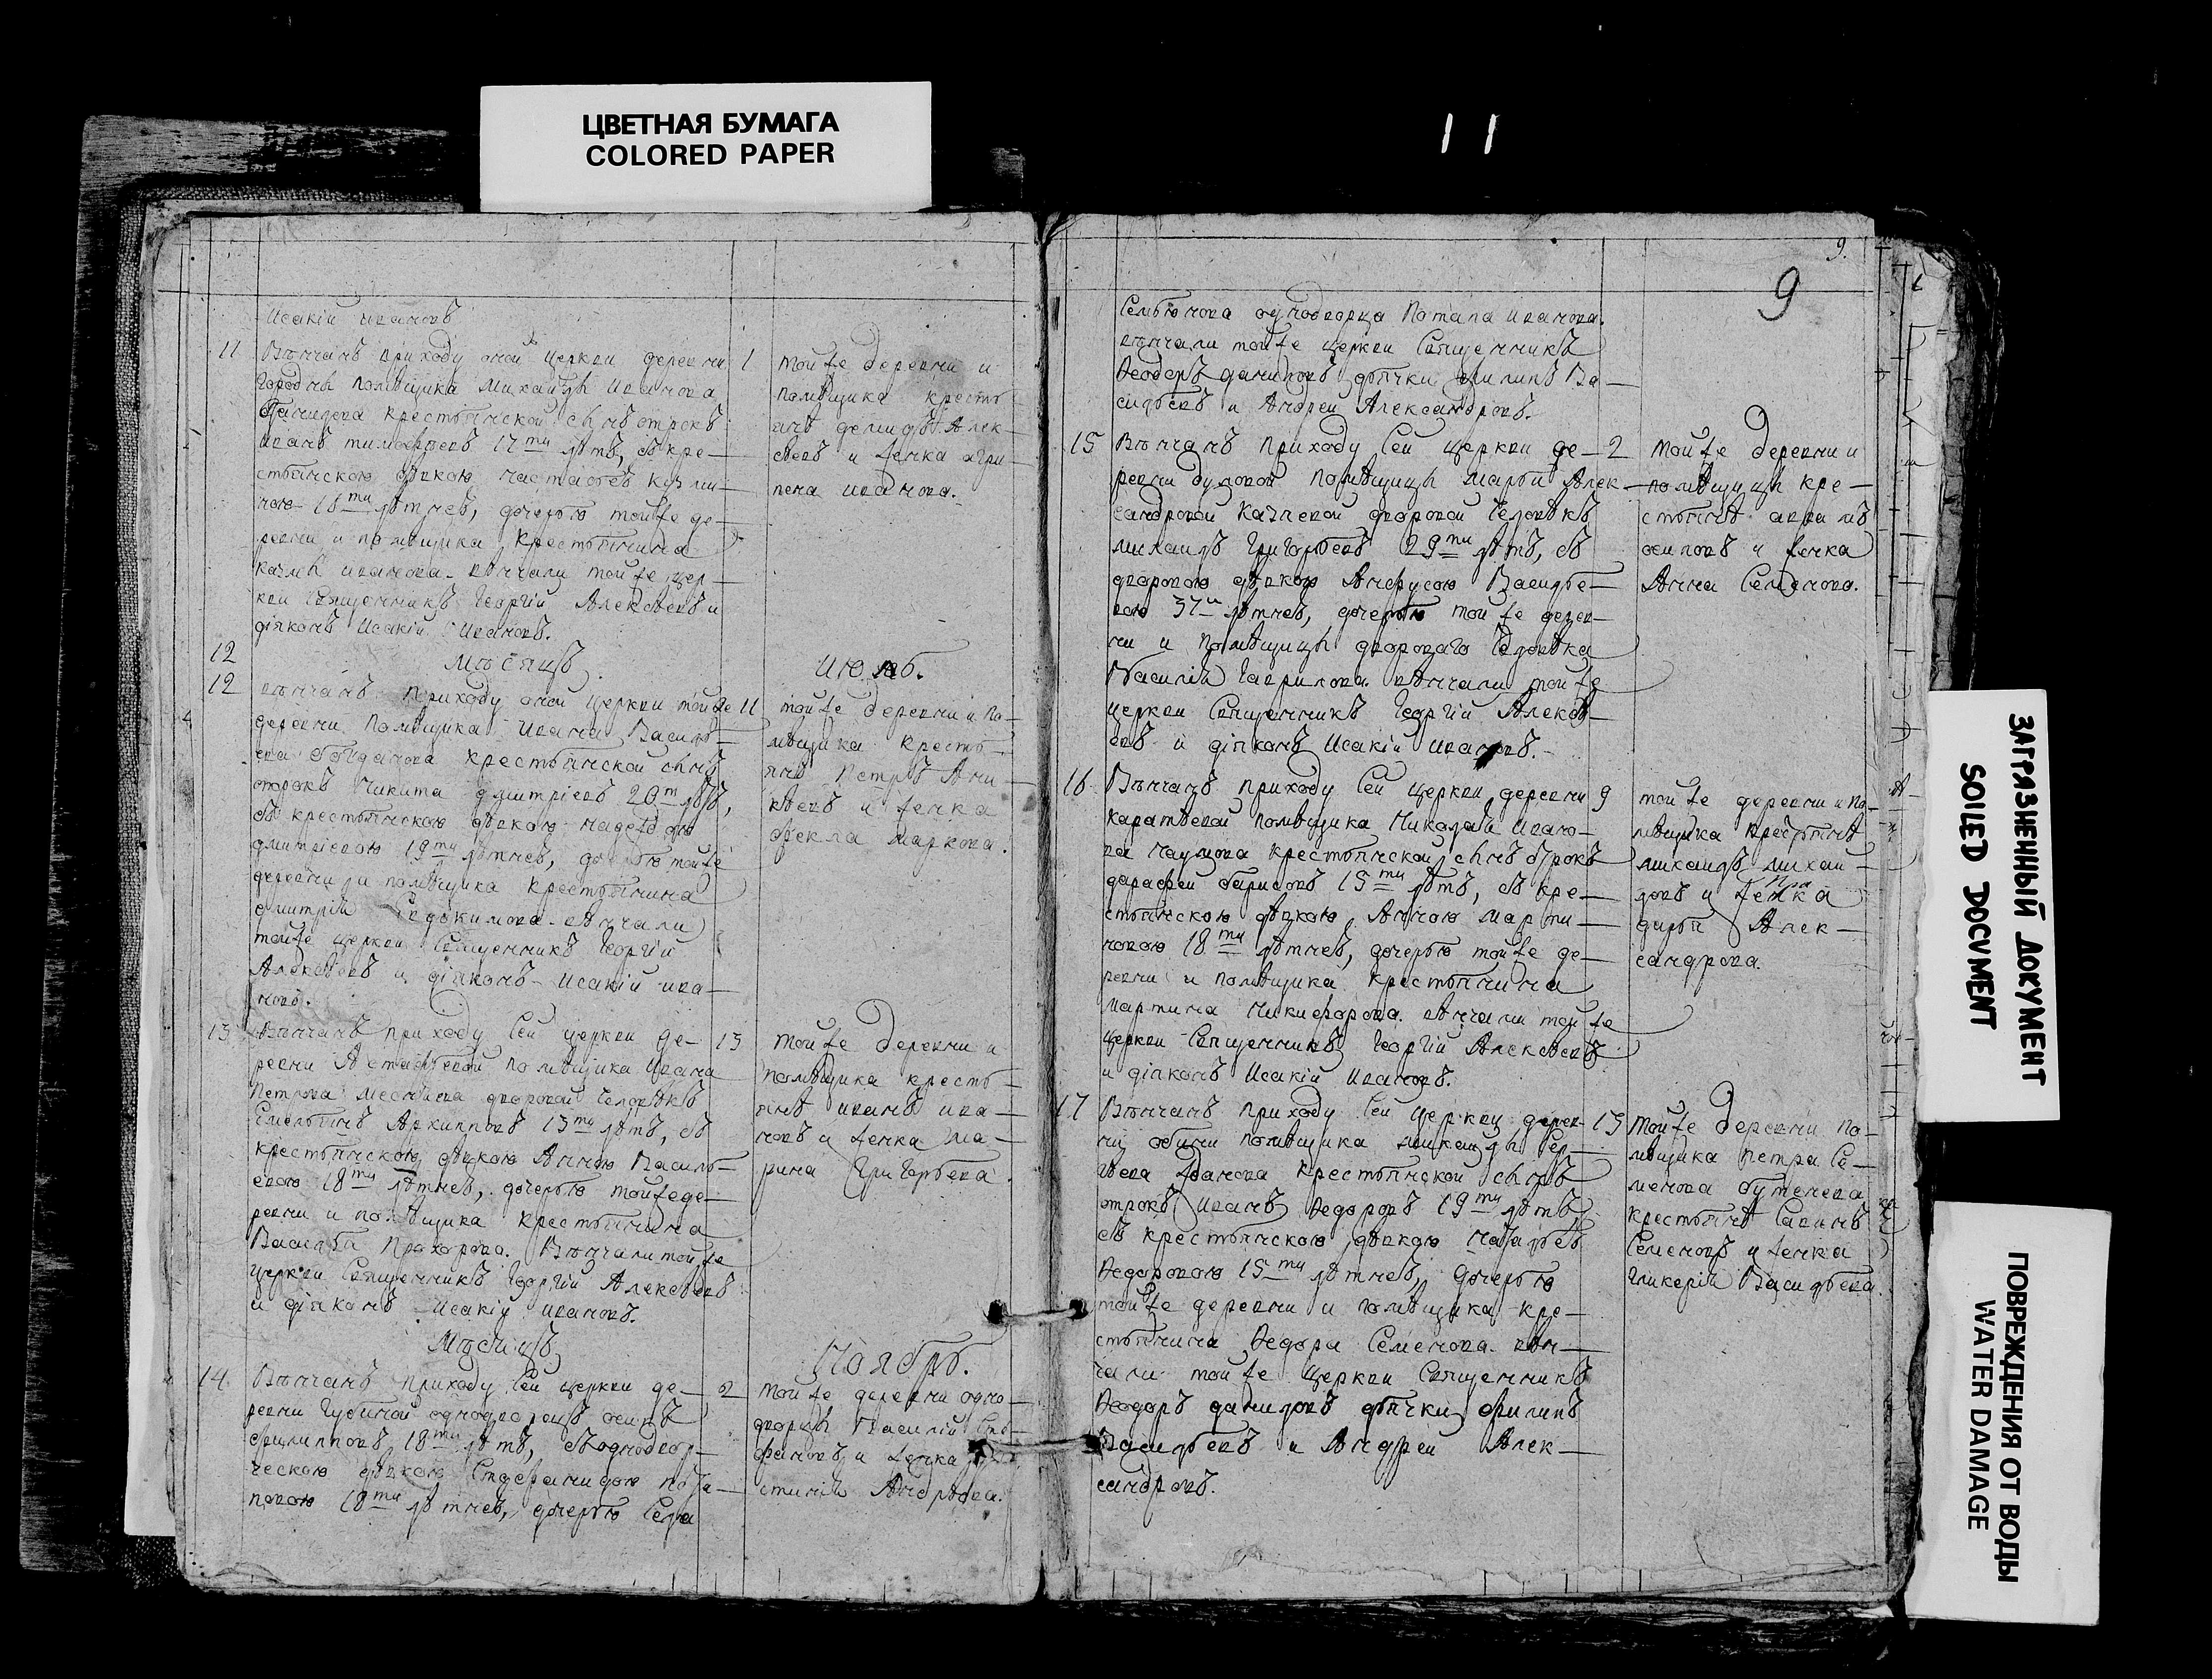 ЦВЕТНАЯ БУМАГА
COLORED PAPER
11
Исакій ивановъ
11
Вѣнчанъ приходу оной церкви деревни
помѣщика Михайлы Иванова
крестьянской сынъ отрокъ
иванъ тимофѣевъ 17ти лѣтъ, съ кре-
стьянскою дѣвкою настасьею кузми-
ною 18ти лѣтнею, дочерью тойже де-
ревни и помѣщика крестьянина
казмы иванова. вѣнчали тойже цер-
кви священникъ Георгій Алексѣевъ и
діяконъ Исакій ивановъ.
1
тойже деревни и
помѣщика кресть
янѣ демидъ Алек-
сѣевъ и женка агри-
пена иванова.
12
Мѣсяцъ
июль.
12
вѣнчанъ приходу оной церкви тойже
деревни помѣщика Ивана Василь-
ева богданова крестьянской сынъ
отрокъ Никита дмитріевъ 20т лѣтъ,
съ крестьянскою дѣвкою надеждою
дмитріевою 19ти лѣтнею, дочерью тойже
деревни и помѣщика крестьянина
дмитрій Евдокимова. вѣнчали
тойже церкви священникъ Георгій
Алексѣевъ и діяконъ Исакій ива-
новъ.
11
тойже деревни и по-
мѣщика кресть-
янѣ Петръ Ани-
кѣевъ и женка
ѳекла маркова.
13
Вѣнчанъ приходу сей церкви де-
ревни Астафьевой помѣщика ивана
Петрова дворовой человѣкъ
Емельянъ Архипповъ 13ти лѣтъ, съ
крестьянскою дѣвкою Анною Василь-
евою 18ти лѣтнею, дочерью тойже де-
ревни и помѣщика крестьянина
Василья Прохорова. Вѣнчали тойже
церкви священникъ Георгій Алексѣевъ
и діяконъ Исакій ивановъ.
13
тойже деревни и
помѣщика кресть-
янѣ иванъ ива-
новъ и женка ма-
рина Григорьева.
Мѣсяцъ
Ноябрь.
14
Вѣнчанъ приходу сей церкви де-
ревни Губиной однодворецъ осипъ
филипповъ 18ти лѣтъ, съ однодвор-
ческою дѣвкою Стефанидою пота-
повою 18ти лѣтнею, дочерью села
2
тойже деревни одно-
дворцы Василій Сте-
фановъ и женка
Андрѣева.
9.
9
Семьюнова однодворца Потапа иванова.
вѣнчали тойже церкви священникъ
Ѳеодоръ даниловъ дьячки филипъ Ва-
сильевъ и Андрей Александровъ.
15
Вѣнчанъ приходу сей церкви де-
ревни дуловой помѣщицы марьи Алек-
сандровой дворовой человѣкъ
михаилъ Григорьевъ 29ти лѣтъ, съ
дворовою дѣвкою Анфусою Василье-
вою 37и лѣтнею, дочерью тойже дерев-
ни и помѣщицы двороваго человѣка
Василій гаврилова. вѣнчали тойже
церкви священникъ Георгій Алексѣ-
евъ и діяконъ Исакій ивановъ.
2
тойже деревни и
помѣщицы кре-
стьянѣ
осиповъ и женка
Анна Семенова.
16
Вѣнчанъ приходу сей церкви деревни
каратѣевой помѣщика Николай ивано-
ва наумова крестьянской сынъ отрокъ
дарофей барисовъ 15ти лѣтъ, съ кре-
стьянскою дѣвкою Анною марти-
новою 18ти лѣтнею, дочерью тойже де-
ревни и помѣщика крестьянина
мартина никифорова. вѣнчали тойже
церкви священникъ Георгій Алексѣевъ
и діяконъ Исакій ивановъ.
9
тойже деревни и по-
мѣщика крестьянѣ
михаилъ михай-
ловъ и женка
дарья Алек-
сандрова.
17
Вѣнчанъ приходу сей церкви дерев-
ни помѣщика михайлы Сер-
гѣева жданова крестьянской сынъ
отрокъ иванъ ѳедоровъ 19ти лѣтъ
съ крестьянскою дѣвкою натальею
ѳедоровою 15ти лѣтнею, дочерью
тойже деревни и помѣщика кре-
стьянина ѳедора Семенова. вѣн-
чали тойже церкви священникъ
Ѳеодоръ даниловъ дьячки филипъ
Васильевъ и Андрей Алек-
сандровъ.
13
тойже деревни по-
мѣщика петра Се-
менова бутенева
крестьянѣ Савинъ
Семеновъ и женка
гликерій Васильева.
ЗАГРЯЗНЕННЫЙ ДОКУМЕНТ
SOILED DOCUMENT
ПОВРЕЖДЕНИЯ ОТ ВОДЫ
WATER DAMAGE